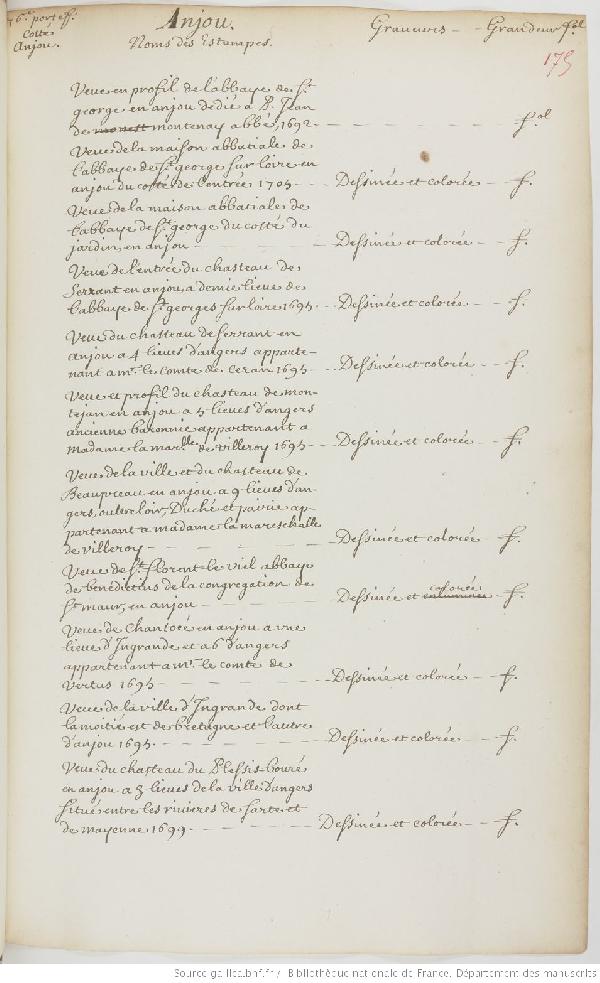 76.e port eff. Anjou. Graveurs - Grandeur fol
Cotté
Anjou. Noms des Estampes.
175
Veue en profil de l'abbaye de St.
george en anjou dedié a D. Jean
de monest montenay abbé, 1692 - f.ol
Veue de la maison abbatiale de
l'abbaye de St. george sur loire en
anjou du costé de l'entrée 1705 - - Dessinée et colorée - f.
Veue de la maison abbatiales de
l'abbaye de St. george du costé du
jardin, en anjou - - - Dessinée et colorée - - f.
Veue de l'entrée du chasteau de
Serrant en anjou, a demie lieue de
l'abbaye de St. georges sur loire 1695 - Dessinée et colorée - - f.
Veue du chasteau de serrant en
anjou a 4 lieues d'angers apparte-
nant a mr. le comte de Ceran 1695 - - Dessinée et colorée - - f.
Veue et profil du chasteau de mon-
tejan en anjou a 5 lieues d'angers
ancienne baronnie appartenant a
Madame la mar.lle de villeroy 1695 - Dessinée et colorée - - f.
Veue de la ville et du chasteau de
Beaupreau en anjou a 9 lieues d'an-
gers, outre loir, Duché et pairie ap-
partenant a madame la mareschalle
de villeroy - - - Dessinée et colorée - f.
Veue de St. florent le viel abbaye
de benedictins de la congregation de
St. maur, en anjou - - - Dessinée et colorée - f.
Veue de Chantocé en anjou a vne
lieue d'Ingrande et a 6 d'angers
appartenant a mr. le comte de
Vertus 1695 - - - Dessinée et colorée - - f.
Veue de la ville d'Ingrande dont
la moitié est de bretagne et l'autre
d'anjou 1695. - - - Dessinée et colorée - - f.
Veue du chasteau du Plessis-bouré
en anjou a 3 lieues de la ville d'angers
situé entre les rivieres de sarte et
de mayenne 1699 - - - Dessinée et colorée - - f.
Source gallica.bnf.fr / Bibliothèque nationale de France. Département des manuscrits